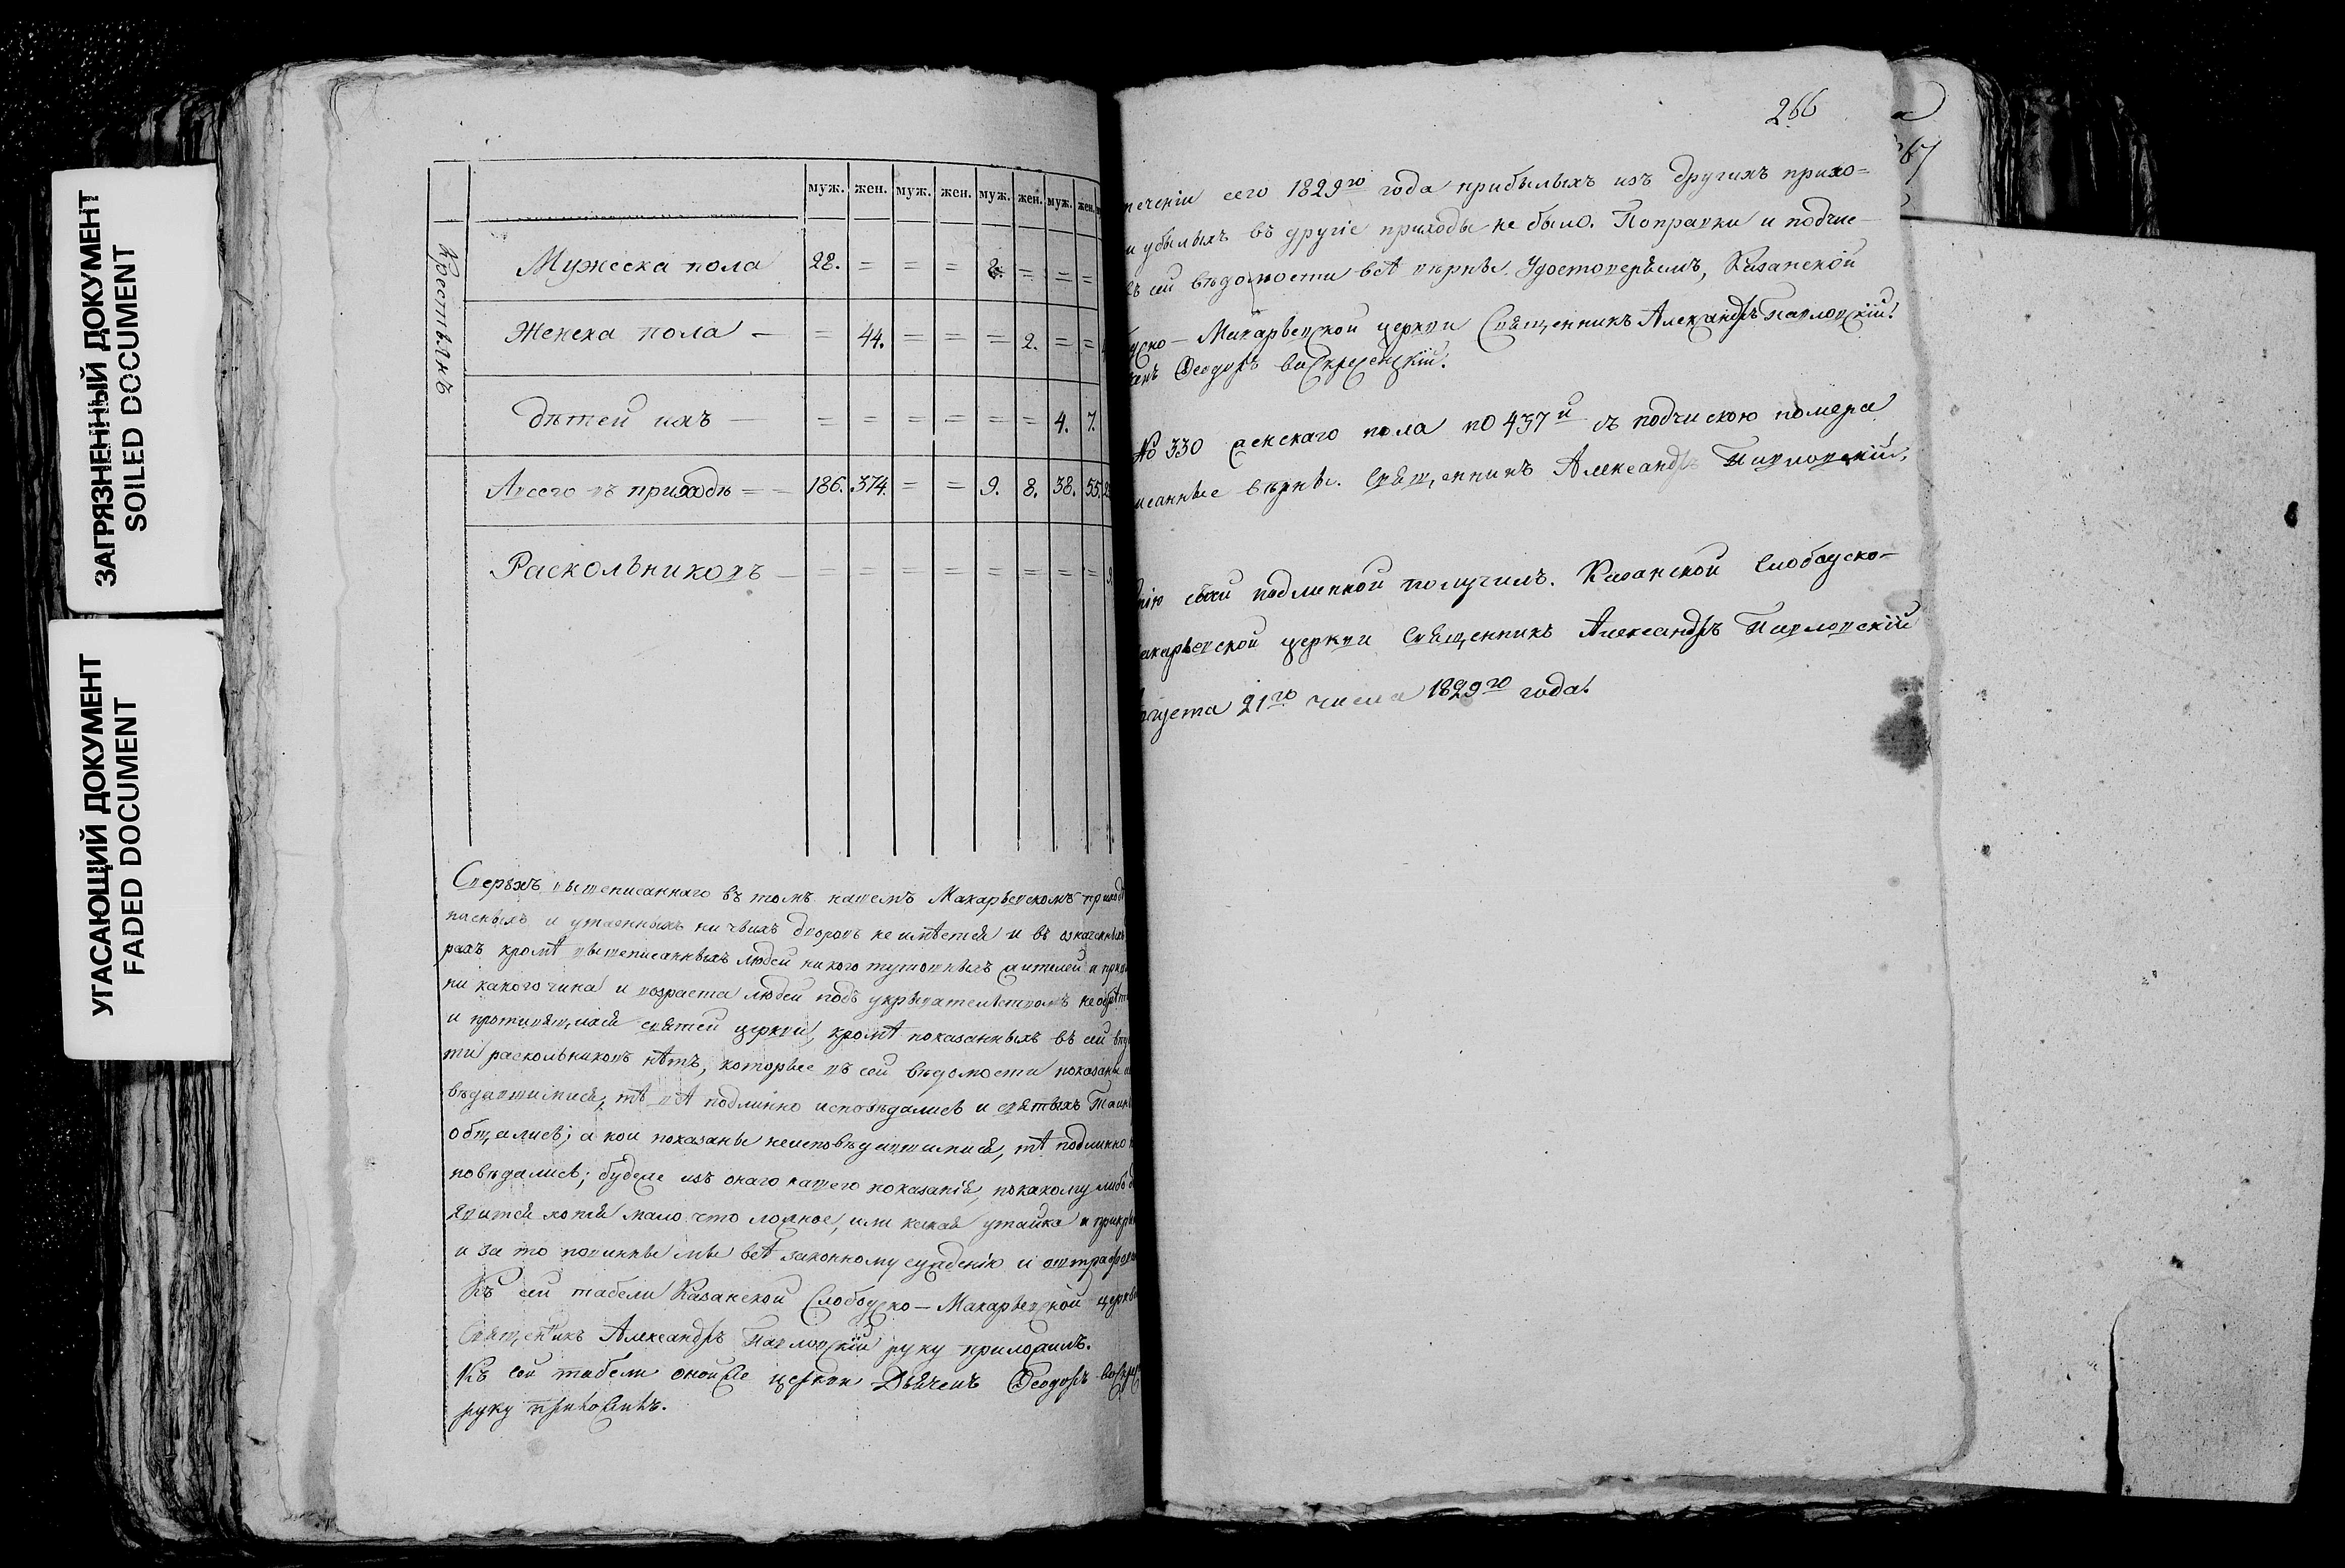 ЗАГРЯЗНЕННЫЙ ДОКУМЕНТ
SOILED DOCUMENT
УГАСАЮЩИЙ ДОКУМЕНТ
FADED DOCUMENT
муж. жен. муж. жен. муж. жен. муж. жен.
Крестьянъ
Мужеска пола 28. = = = 2. = = =
Женска пола — = 44. = = = 2. = =
дѣтей ихъ — = = = = = = 4. 7.
Всего въ приходѣ = — 186. 374. = = 9. 8. 38. 55.
Раскольниковъ — = = = = = = = =
Сверхъ вышеписаннаго въ томъ нашемъ Макарьевскомъ приходѣ
писныхъ и утаенныхъ ни чьихъ дворовъ не имѣется и въ означенныхъ
рахъ кромѣ вышеписанныхъ людей никого тутошнихъ жителей и
ни какого чина и возраста людей подъ укрывательствомъ не
и противящихся святей церкви, кромѣ показанныхъ въ сей
ти раскольниковъ нѣтъ, которые въ сей вѣдомости показаны
вѣдавшимися, тѣ всѣ подлинно исповѣдались и святыхъ Таинъ
общались; а кои показаны неисповѣдавшимися, тѣ подлинно
повѣдались; буде же изъ онаго нашего показанія, по какому либо
явится хотя мало что ложное, или какая утайка и
и за то повинны мы всѣ законному сужденію и
Къ сей табели Казанской Слободско-Макарьевской церкви
Священникъ Александръ Павловскій руку приложилъ.
Къ сей табели оной же церкви Дьячекъ Ѳеодоръ
руку приложилъ.
266
67
течении сего 1829го года прибылыхъ изъ другихъ прихо=
и убылыхъ въ другіе приходы не было. Поправки и подчис-
въ сей вѣдомости всѣ вѣрны. Удостовѣряемъ, Казанской
Макарьевской церкви Священникъ Александръ Павловскій.
Ѳеодоръ Воскресенскій.
№ 330 женскаго пола по 437й съ подчискою номера
писанные вѣрны. Священникъ Александръ Павловскій,
подлинной получилъ. Казанской Слободско-
акарьевской церкви Священникъ Александръ Павловскій
Августа 21го числа 1829го года.